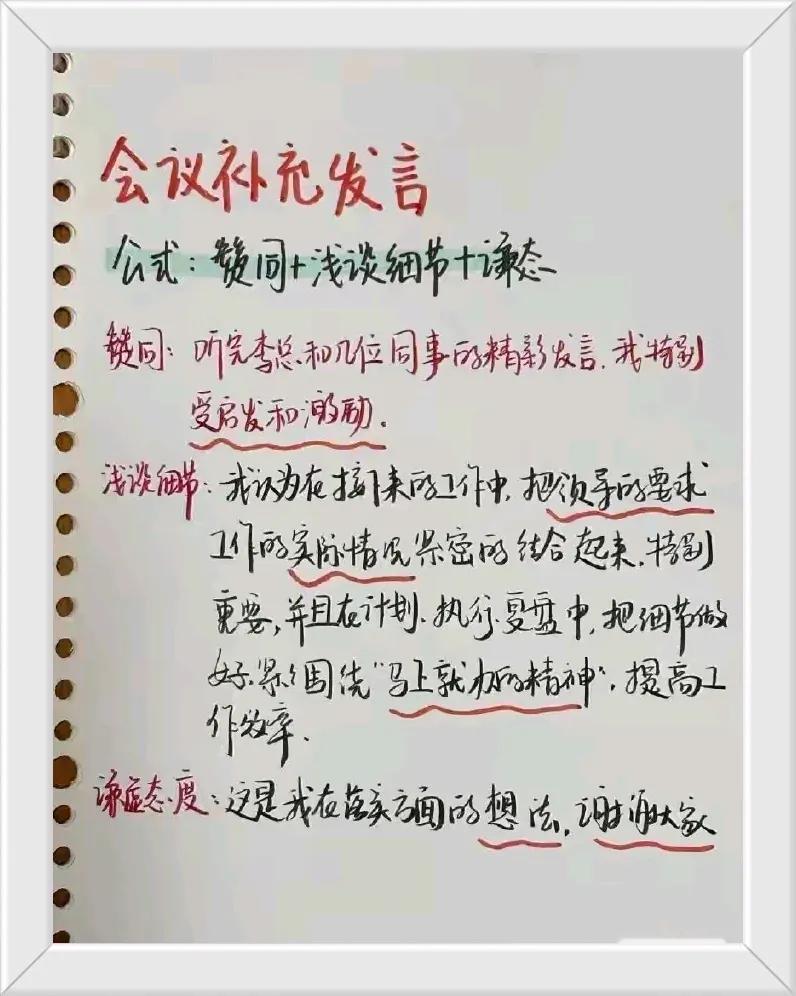 会议补充发言
公式:赞同+浅谈细节+谦态
赞同:听完李总和几位同事的精彩发言,我特别
受启发和激励.
浅谈细节:我认为在接下来的工作中,把领导的要求
工作的实际情况紧密的结合起来,特别
重要,并且在计划、执行、复盘中,把细节做
好.紧紧围绕"马上就办的精神",提高工
作效率.
谦虚态度:这是我在落实方面的想法,谢谢大家